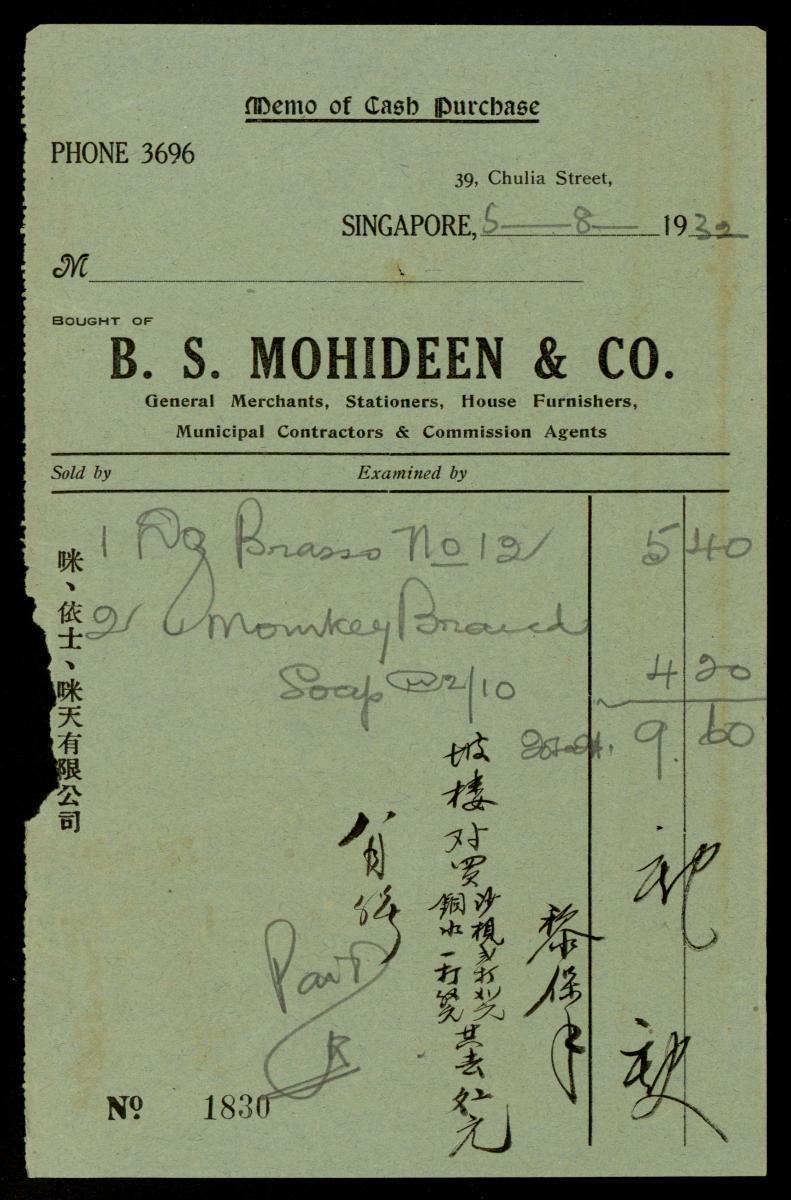 Memo of Cash Purchase
PHONE 3696
39, Chulia Street,
SINGAPORE, 5—8—1932
M
BOUGHT OF
B. S. MOHIDEEN & CO.
General Merchants, Stationers, House Furnishers,
Municipal Contractors & Commission Agents
Sold by Examined by
1 Dz Brasso No 12 5 40
2 " Monkey Brand
Soap @ 2/10 4 20
9. 60
咪、依士、咪天有限公司
坡樓對買沙枧弍打
銅水一打
其去
元
黎保
八月
Paid
Nº 1830